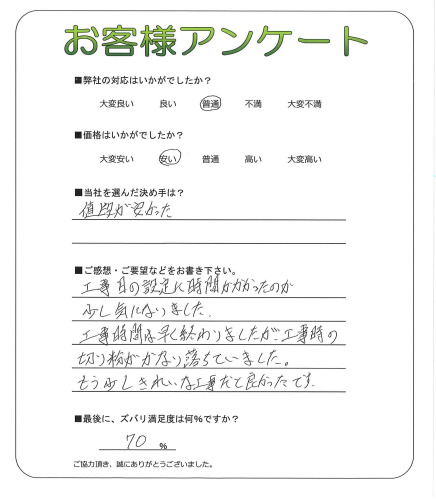 お客様アンケート
■弊社の対応はいかがでしたか？
大変良い 良い 普通 不満 大変不満
■価格はいかがでしたか？
大変安い 安い 普通 高い 大変高い
■当社を選んだ決め手は？
値段が安かった
■ご感想・ご要望などをお書き下さい。
工事日の設定に時間がかかったのが
少し気になりました.
工事時間は早く終わりましたが、工事時の
切り粉がかなり落ちていました。
もう少しきれいな工事だと良かったです.
■最後に、ズバリ満足度は何%ですか？
70 %
ご協力頂き、誠にありがとうございました。